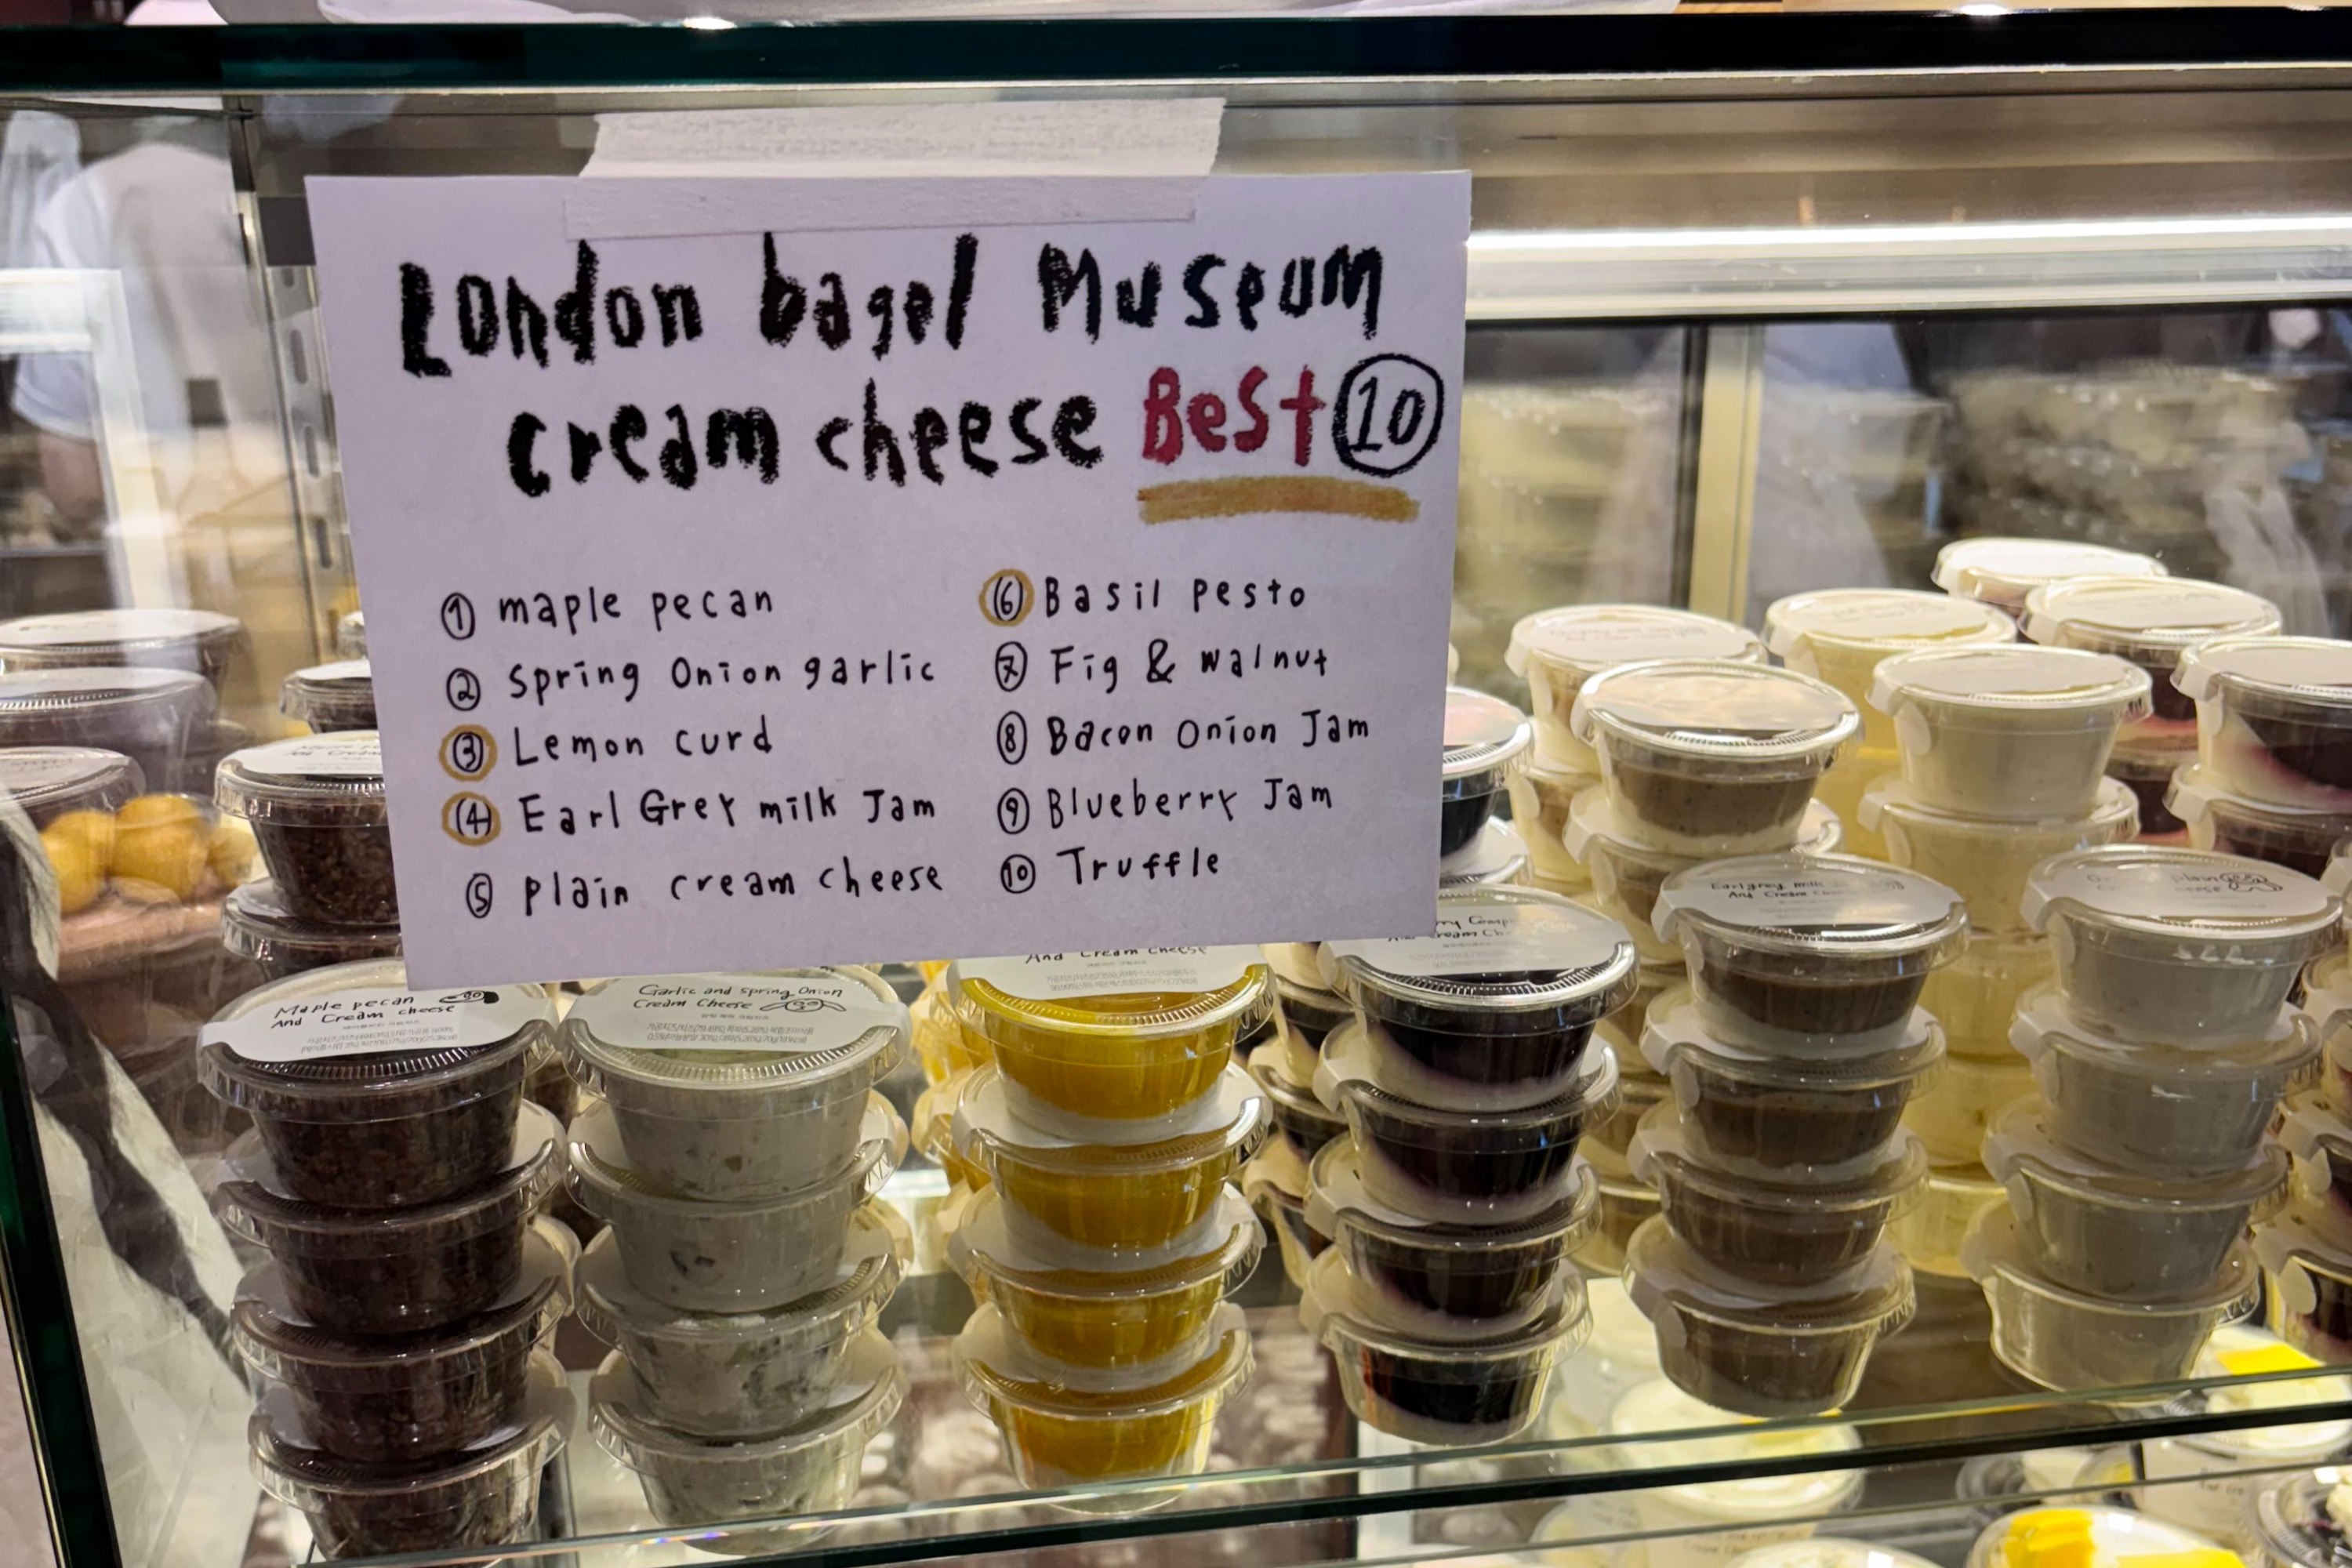 London bagel Museum
cream cheese Best ⑩
① maple pecan
② Spring Onion garlic
③ Lemon curd
④ Earl Grey milk Jam
⑤ plain cream cheese
⑥ Basil Pesto
⑦ Fig & walnut
⑧ Bacon Onion Jam
⑨ Blueberry Jam
⑩ Truffle
Maple pecan
And Cream cheese
Garlic and Spring Onion
Cream Cheese
And Cream cheese
Earl grey milk
And Cream cheese
plain